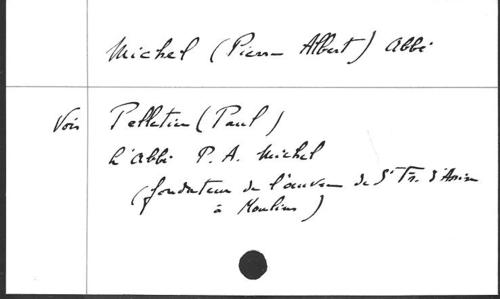 Michel (Pierre Albert) Abbé
Voir Pelletier (Paul)
L'Abbé P. A. Michel
(fondateur de l'œuvre de St Fr. d'Assise
à Moulins)